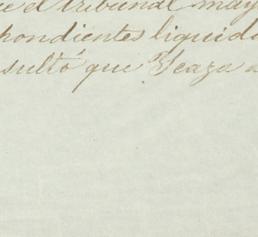 ce el tribunal may
pondientes liquida
sultó que Icaza a